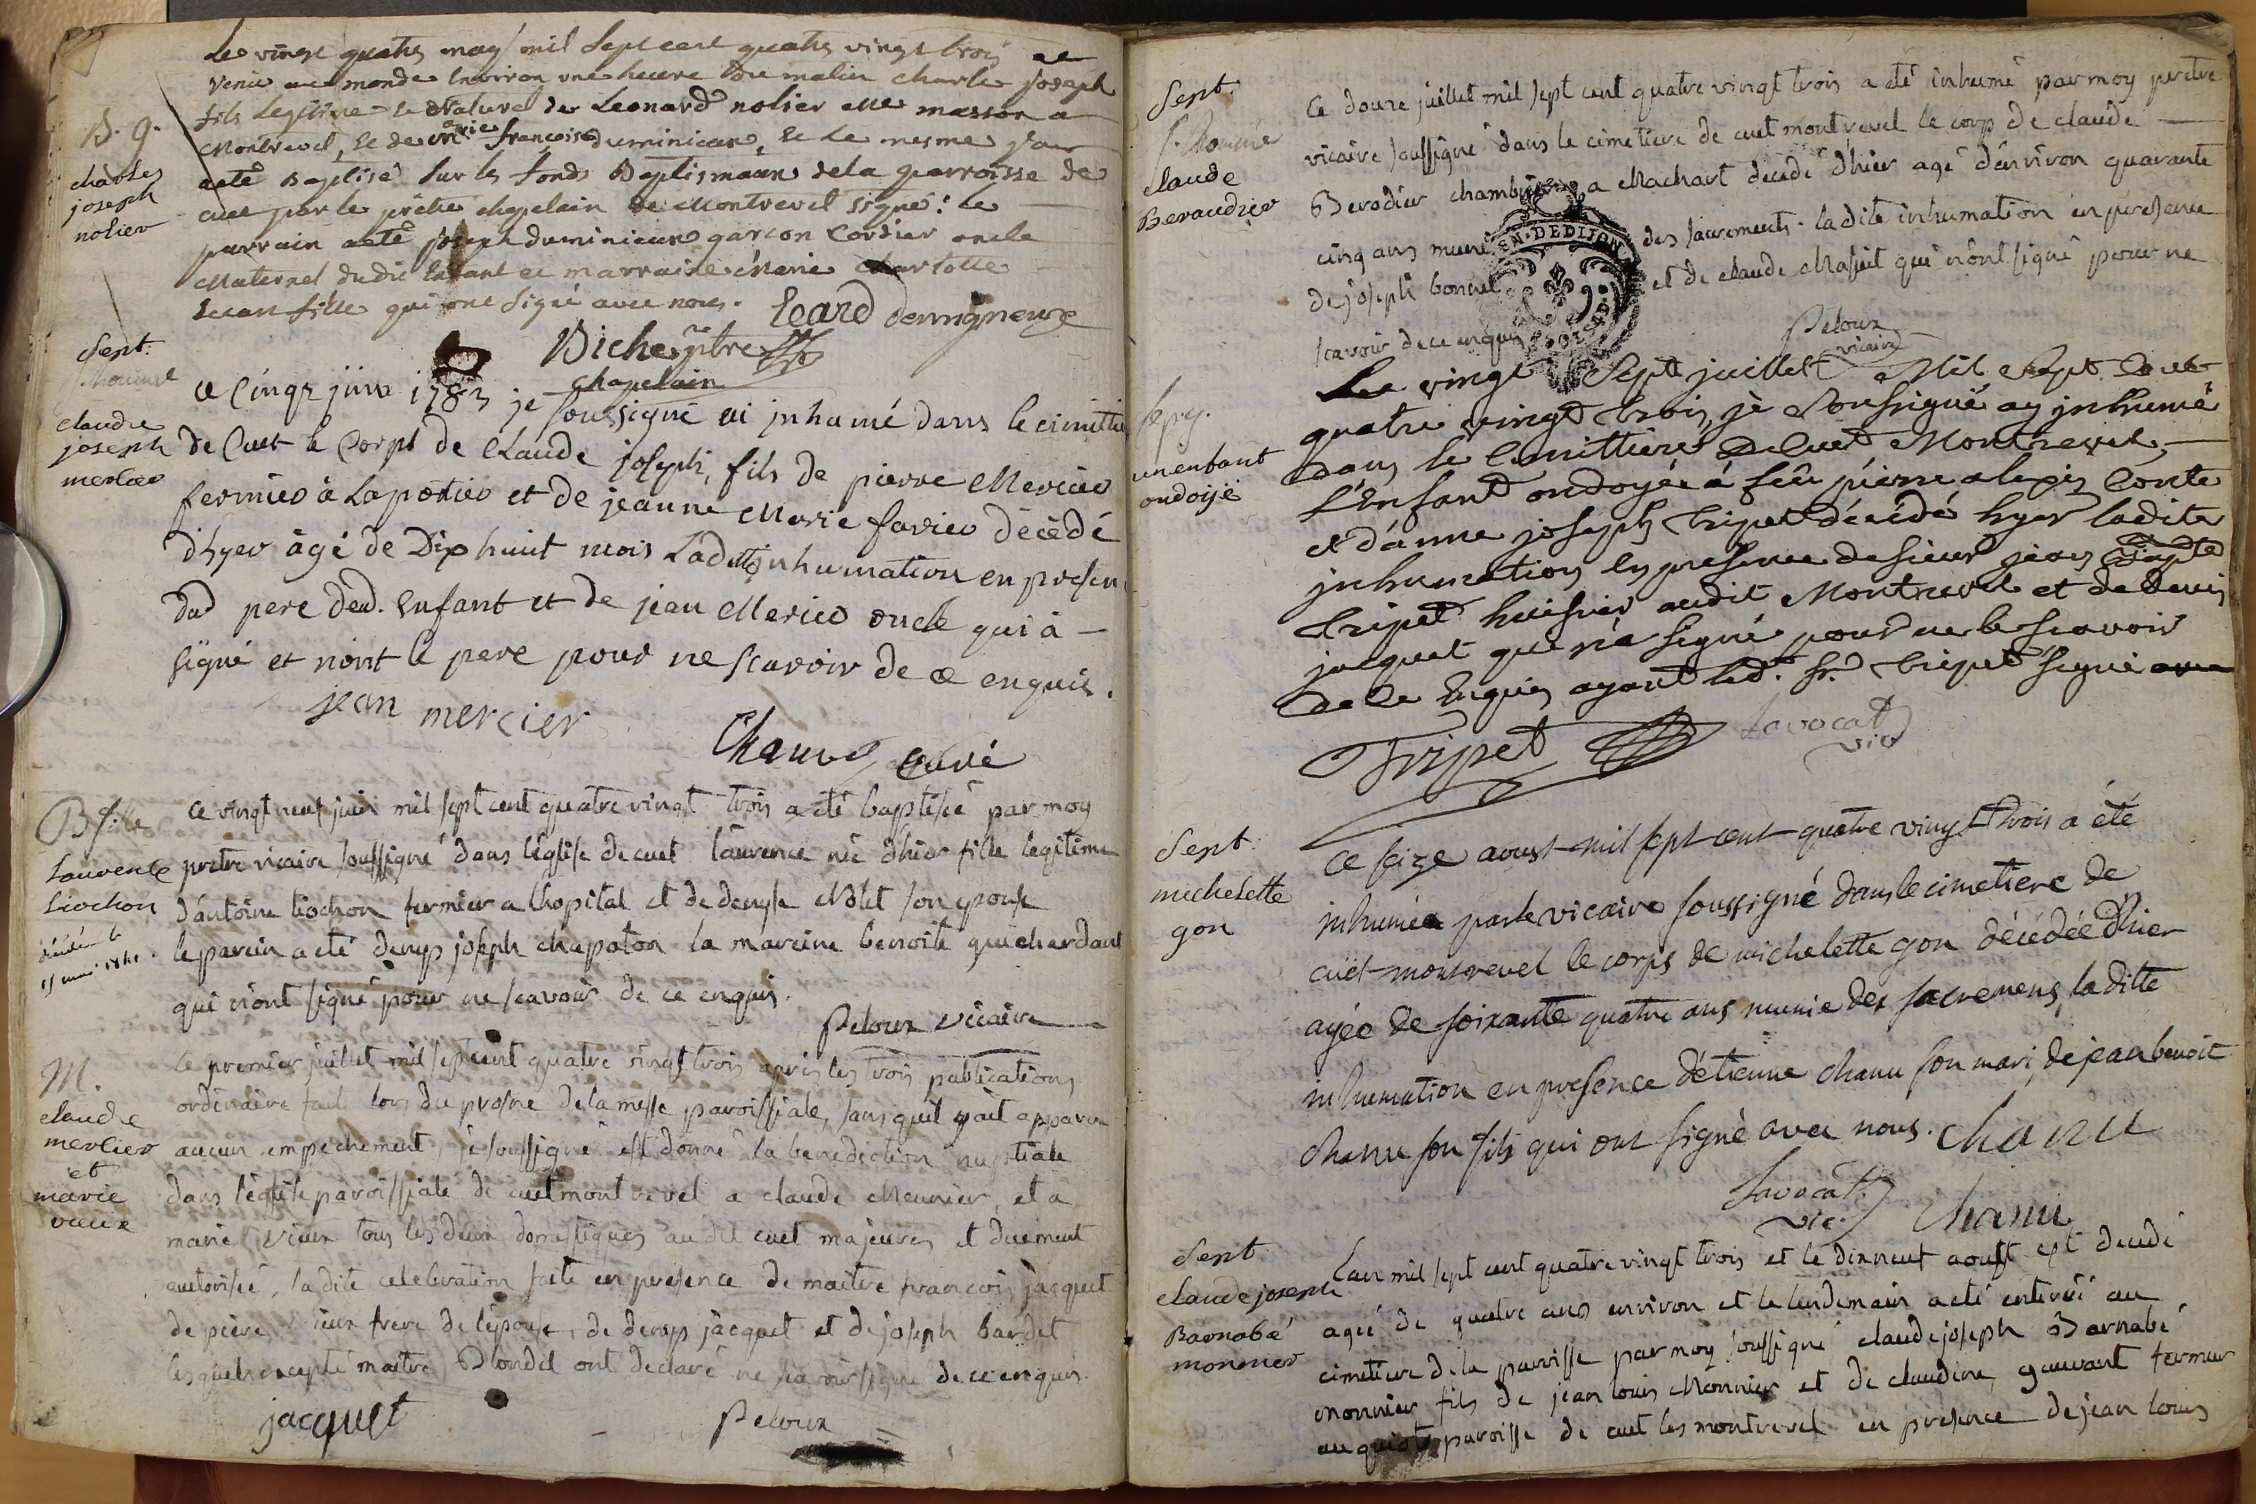 Le vingt quatre may mil sept cent quatre vingt trois est
venu au monde environ une heure du matin charle joseph
fils legitime et naturel de Leonard nolier me masson a
Montrevel, et de marie francoise duminieux, et le mesme jour
aeté Baptisé sur les fonds Baptismaux dela parroisse de
cuet par le prêtre chapelain de Montrevel signé: Le
parrain aeté joseph duminieux garcon Cordier oncle
Maternel dudit Enfant et marraine Marie charlotte
Ecart fille qui ont signé avec nous.
B. g.
charles
joseph
nolier
Ecard
Biche, ptre
chapelain
Sept.
claude
joseph
mercier
ce cinqr juin 1783 je soussigné ai inhumé dans le cimitie
de Cuet le Corps de Claude joseph, fils de pierre Mercier
fermier à Lapotier et de jeanne Marie favier décédé
d'hyer âgé de Dixhuit mois Laditte inhumation en presen
dud pere dud. Enfant et de jean Mercier oncle qui à
signé et nont le pere pour ne scavoir de ce enquis.
jean mercier
Chauve curé
B fille
Laurente
Liochon
décédée le
ce vingt neuf juin mil sept cent quatre vingt trois a eté baptisée par moy
pretre vicaire soussigné dans l'église de cuet laurence née d'hier fille legitime
d'antoine liochon fermier a lhopital et de denyse Nolet son epouse
le parein a eté denys joseph chapaton la mareine benoite guichardant
qui n'ont signé pour ne scavoir de ce enquis.
Peloux vicaire
M.
claude
mercier
et
marie
vieux
Le premier juillet mil sept cent quatre vingt trois après les trois publications
ordinaire fait lors du prosne de la messe paroissiale, sans quil y ait apparu
aucun empechement, je soussigné est donné la benediction nuptiale
dans l'église paroissiale de cuet montrevel a claude Meunier, et a
marie vieux tous les deux domestiques audit cuet majeures et duement
autorisée, ladite celebration faite en presence de maitre francois jacquet
de piere vieux frere de l'épouse, de denys jacquet et de joseph bardet
lesquels excepté maitre Blondel ont declaré ne scavoir signé de ce enquis.
jacquet
Peloux
Sept.
claude
Beraudier
Ce douze juillet mil sept cent quatre vingt trois a eté inhumé par moy pretre
vicaire soussigné dans le cimetiere de cuet montrevel le corp de claude
Berodier a Machart decedé d'hier agé d'environ quarante
cinq ans muni des sacrements. ladite inhumation en presence
de joseph bonnet et de claude Masuit qui n'ont signé pour ne
scavoir de ce enquis
EN·DEDIJON
Peloux
vicaire
un enfant
ondoijé
Le vingt Sept juillet Mil Sept Cent
quatre vingt trois je Soussigné ay inhumé
dans le Cimittiere de Cuet Montrevel
L'Enfant ondoyé à feu pierre alexis Conte
et d'anne joseph tripet décédé hyer ladite
inhumation en presence de sieur jean
tripet huissier audit Montrevel et de denis
jacquet qui n'a signé pour ne le scavoir
de ce Enquis ayant led.t Sr. tripet signé
Tripet
Lavocat
vic
Sept.
michelette
gon
ce seize aoust mil sept cent quatre vingt trois a été
inhumée par le vicaire soussigné dans le cimetiere de
cuët montrevel le corps de michelette gon décédée d'hier
agée de soixante quatre ans munie des sacremens, laditte
inhumation en presence d'étienne chanu son mari, de jean benoit
chanu son fils qui ont signé avec nous. chanu
Lavocat
vic.
chanu
Sept
claude joseph
Barnabé
monnier
Lan mil sept cent quatre vingt trois et le dixneuf aoust est decedé
agé de quatre ans environ et le lendemain a eté enterré au
cimetiere de la paroisse par moy soussigné claude joseph Barnabé
monnier fils de jean louis Monnier et de claudine gauvant fermier
au paroisse de cuet les montrevel en presence de jean louis